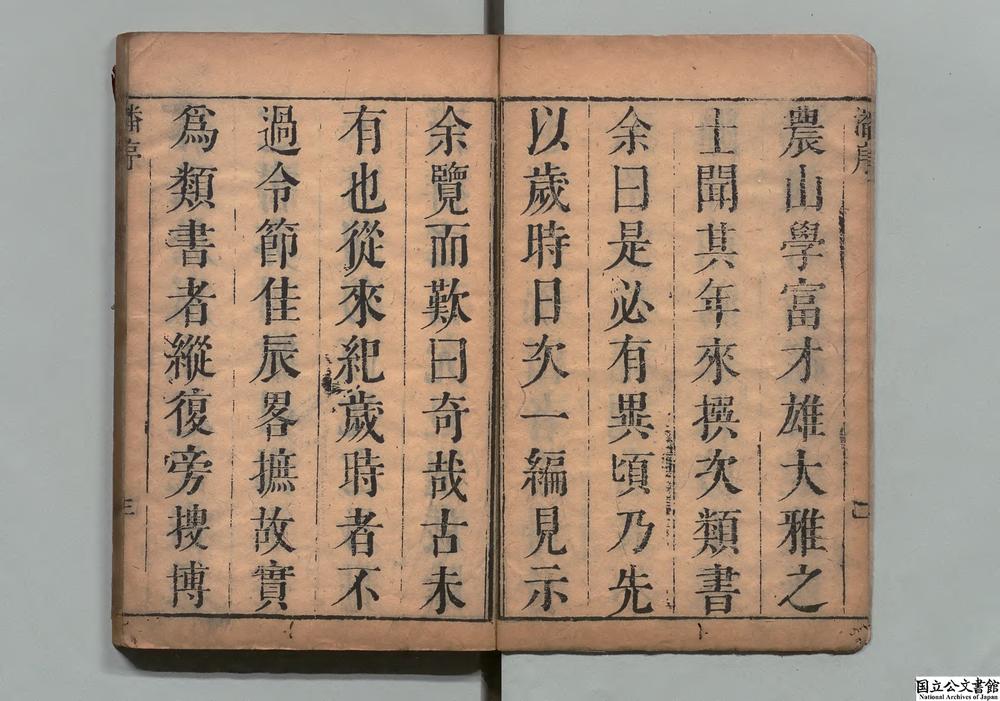 潘序
農山學富才雄大雅之
士聞其年來撰次類書
余曰是必有異頃乃先
以歲時日次一編見示
余覽而歎曰奇哉古未
有也從來紀歲時者不
過令節佳辰畧摭故實
爲類書者縱復旁搜博
潘序
三
国立公文書館
National Archives of Japan